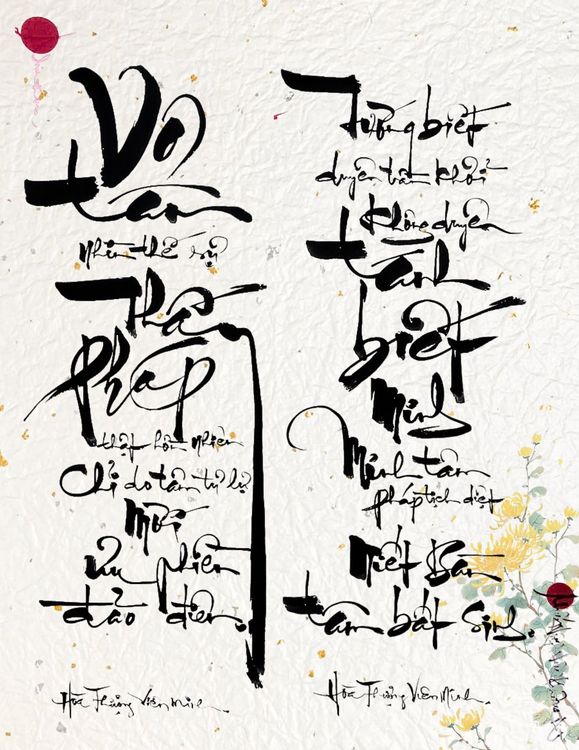 Vô
tâm
nhìn thế sự
Thân
pháp
thật hồn nhiên
Chỉ do tâm tư lự
Mới
ưu phiền
đảo điên.
Hòa Thượng Viên Minh.
Tướng biết
duyên trần khởi
Không duyên
tánh
biết
minh
Minh tâm
pháp tịch diệt
Niết Bàn
tâm bất sinh.
Hòa Thượng Viên Minh.